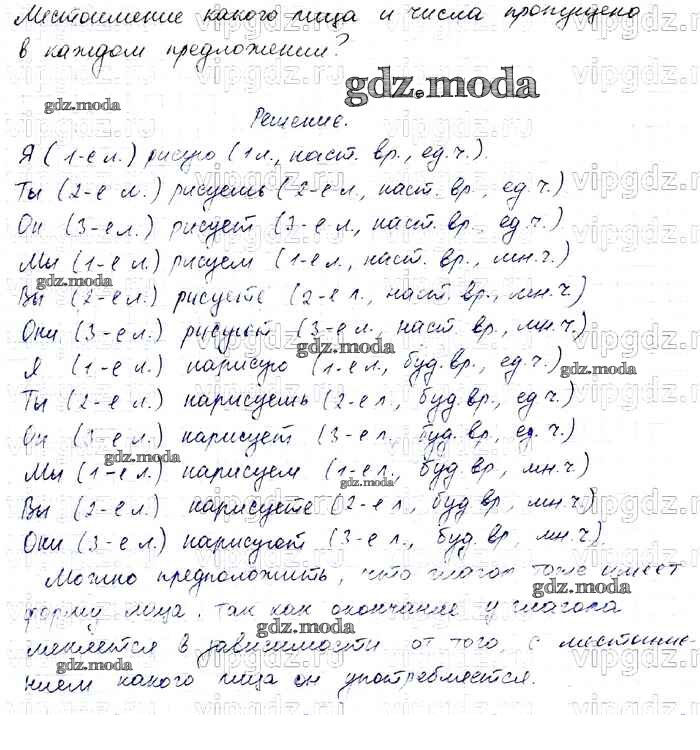 Местоимение какого лица и числа пропущено
в каждом предложении?
gdz.moda
gdz.moda
Решение.
Я (1-е л.) рисую (1 л., наст. вр., ед.ч.).
Ты (2-е л.) рисуешь (2-е л., наст. вр., ед.ч.)
Он (3-е л.) рисует (3-е л., наст. вр., ед.ч.)
Мы (1-е л.) рисуем (1-е л., наст. вр., мн.ч.)
gdz.moda
Вы (2-е л.) рисуете (2-е л., наст. вр., мн.ч.)
Они (3-е л.) рисуют (3-е л., наст. вр., мн.ч.)
gdz.moda
Я (1-е л.) нарисую (1-е л., буд. вр., ед.ч.)
gdz.moda
Ты (2-е л.) нарисуешь (2-е л., буд. вр., ед.ч.)
Он (3-е л.) нарисует (3-е л., буд. вр., ед.ч.)
gdz.moda
Мы (1-е л.) нарисуем (1-е л., буд. вр., мн.ч.)
gdz.moda
Вы (2-е л.) нарисуете (2-е л., буд. вр., мн.ч.)
Они (3-е л.) нарисуют (3-е л., буд. вр., мн.ч.)
Можно предположить, что глагол тоже имеет
gdz.moda
форму лица, так как окончание у глагола
gdz.moda
меняется в зависимости от того, с местоиме-
gdz.moda
нием какого лица он употребляется.